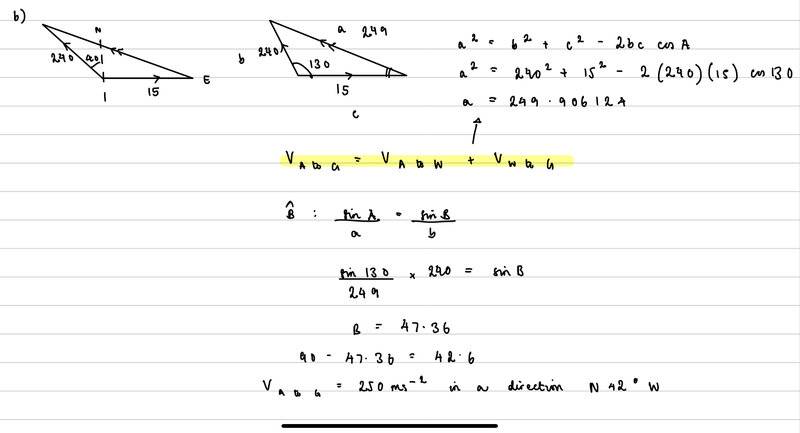 b)
N
240 40
15 E
a 249
b 240 130
15
c
a² = b² + c² - 2bc cos A
a² = 240² + 15² - 2(240)(15) cos 130
a = 249.906124
V A to G = V A to W + V W to G
B̂ : sin A / a = sin B / b
sin 130 / 249 × 240 = sin B
B = 47.36
90 - 47.36 = 42.6
V A to G = 250 ms⁻² in a direction N 42° W